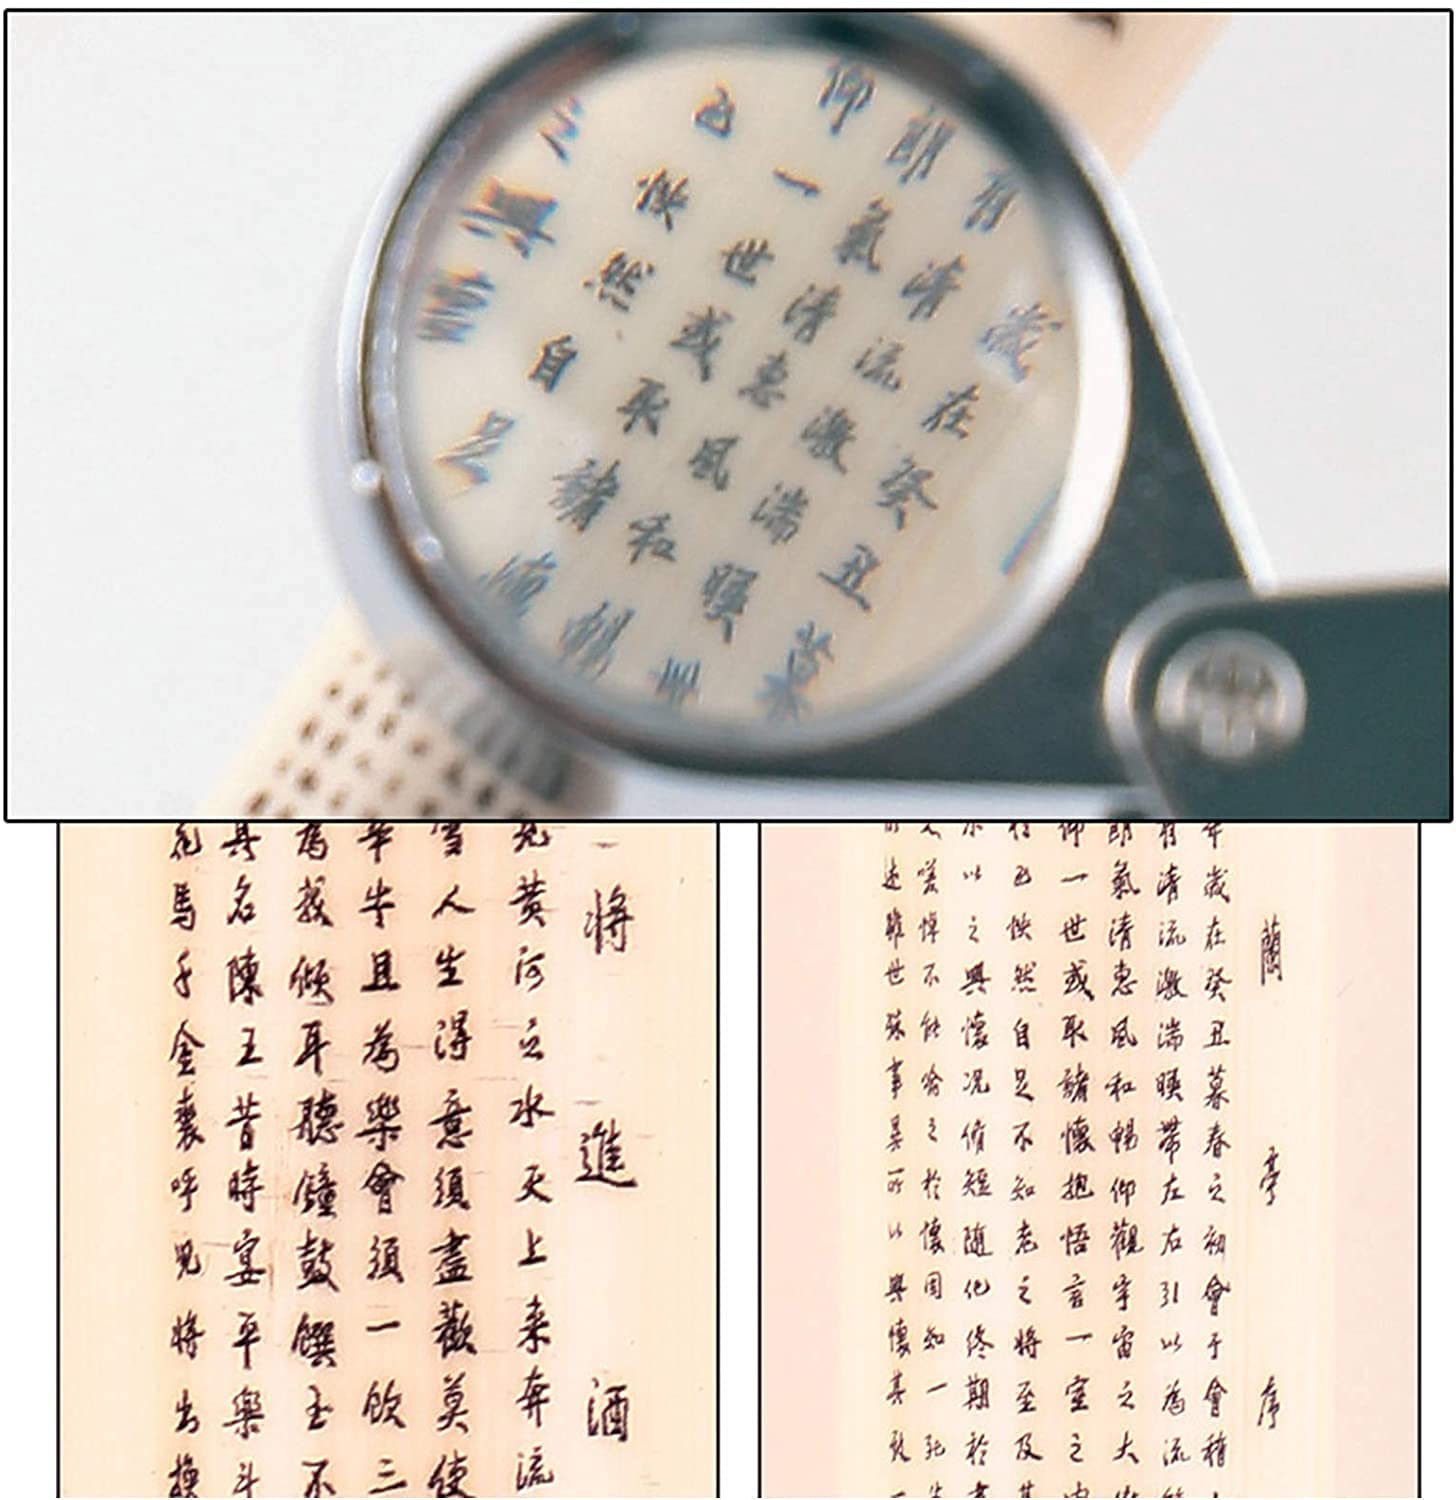 歲在癸丑暮
有清流激湍暎
朗氣清惠風和暢
仰一世或取諸懷
已怏然自足
之興
將進酒
見黃河之水天上来奔流
雪人生得意須盡歡莫使
宰牛且為樂會須一飲三
為我傾耳聽鐘鼓饌玉不
其名陳王昔時宴平樂斗
花馬千金裘呼兒將出換
蘭亭序
年歲在癸丑暮春之初會于會稽
有清流激湍暎帶左右引以為流
朗氣清惠風和暢仰觀宇宙之大
仰一世或取諸懷抱悟言一室之内
已怏然自足不知老之將至及其
以之興懷況脩短隨化終期於
人嗟悼不能喻之於懷固知一死生
所述雖世殊事異所以興懷其致一